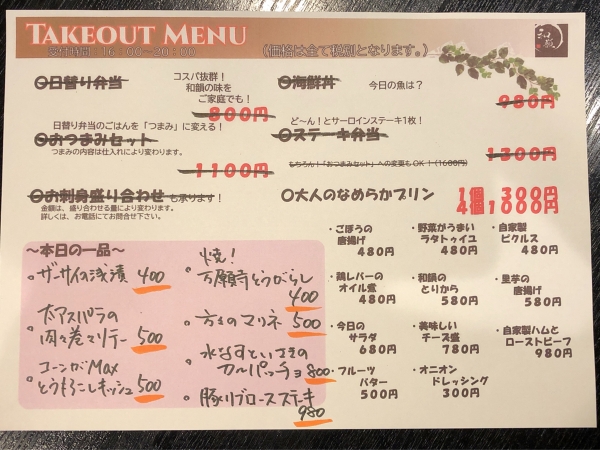 TAKEOUT MENU
受付時間：16：00～20：00
（価格は全て税別となります。）
和韻
〇日替り弁当
コスパ抜群！
和韻の味を
ご家庭でも！
800円
〇海鮮丼
今日の魚は？
980円
日替り弁当のごはんを「つまみ」に変える！
〇おつまみセット
つまみの内容は仕入れにより変わります。
1100円
ど～ん！とサーロインステーキ1枚！
〇ステーキ弁当
1300円
もちろん！「おつまみセット」への変更もOK！（1600円）
〇お刺身盛り合わせ も承ります！
金額は、盛り合わせる量により変わります。
詳しくは、お電話にてお問合せ下さい。
〇大人のなめらかプリン
1個 300円
4個1000円
～本日の一品～
・ザーサイの浅漬 400
・太アスパラの
肉々巻マリテー 500
・コーンがMax
とうもろこしキッシュ 500
・焼！
万願寺とうがらし
400
・方々のマリネ 500
・水なすといさきの
カーパッチョ 800
・豚リブロースステーキ
980
・ごぼうの
唐揚げ
480円
・野菜がうまい
ラタトゥイユ
480円
・自家製
ピクルス
480円
・鶏レバーの
オイル煮
480円
・和韻の
とりから
580円
・里芋の
唐揚げ
580円
・今日の
サラダ
680円
・美味しい
チーズ盛
780円
・自家製ハムと
ローストビーフ
980円
・フルーツ
バター
500円
・オニオン
ドレッシング
300円